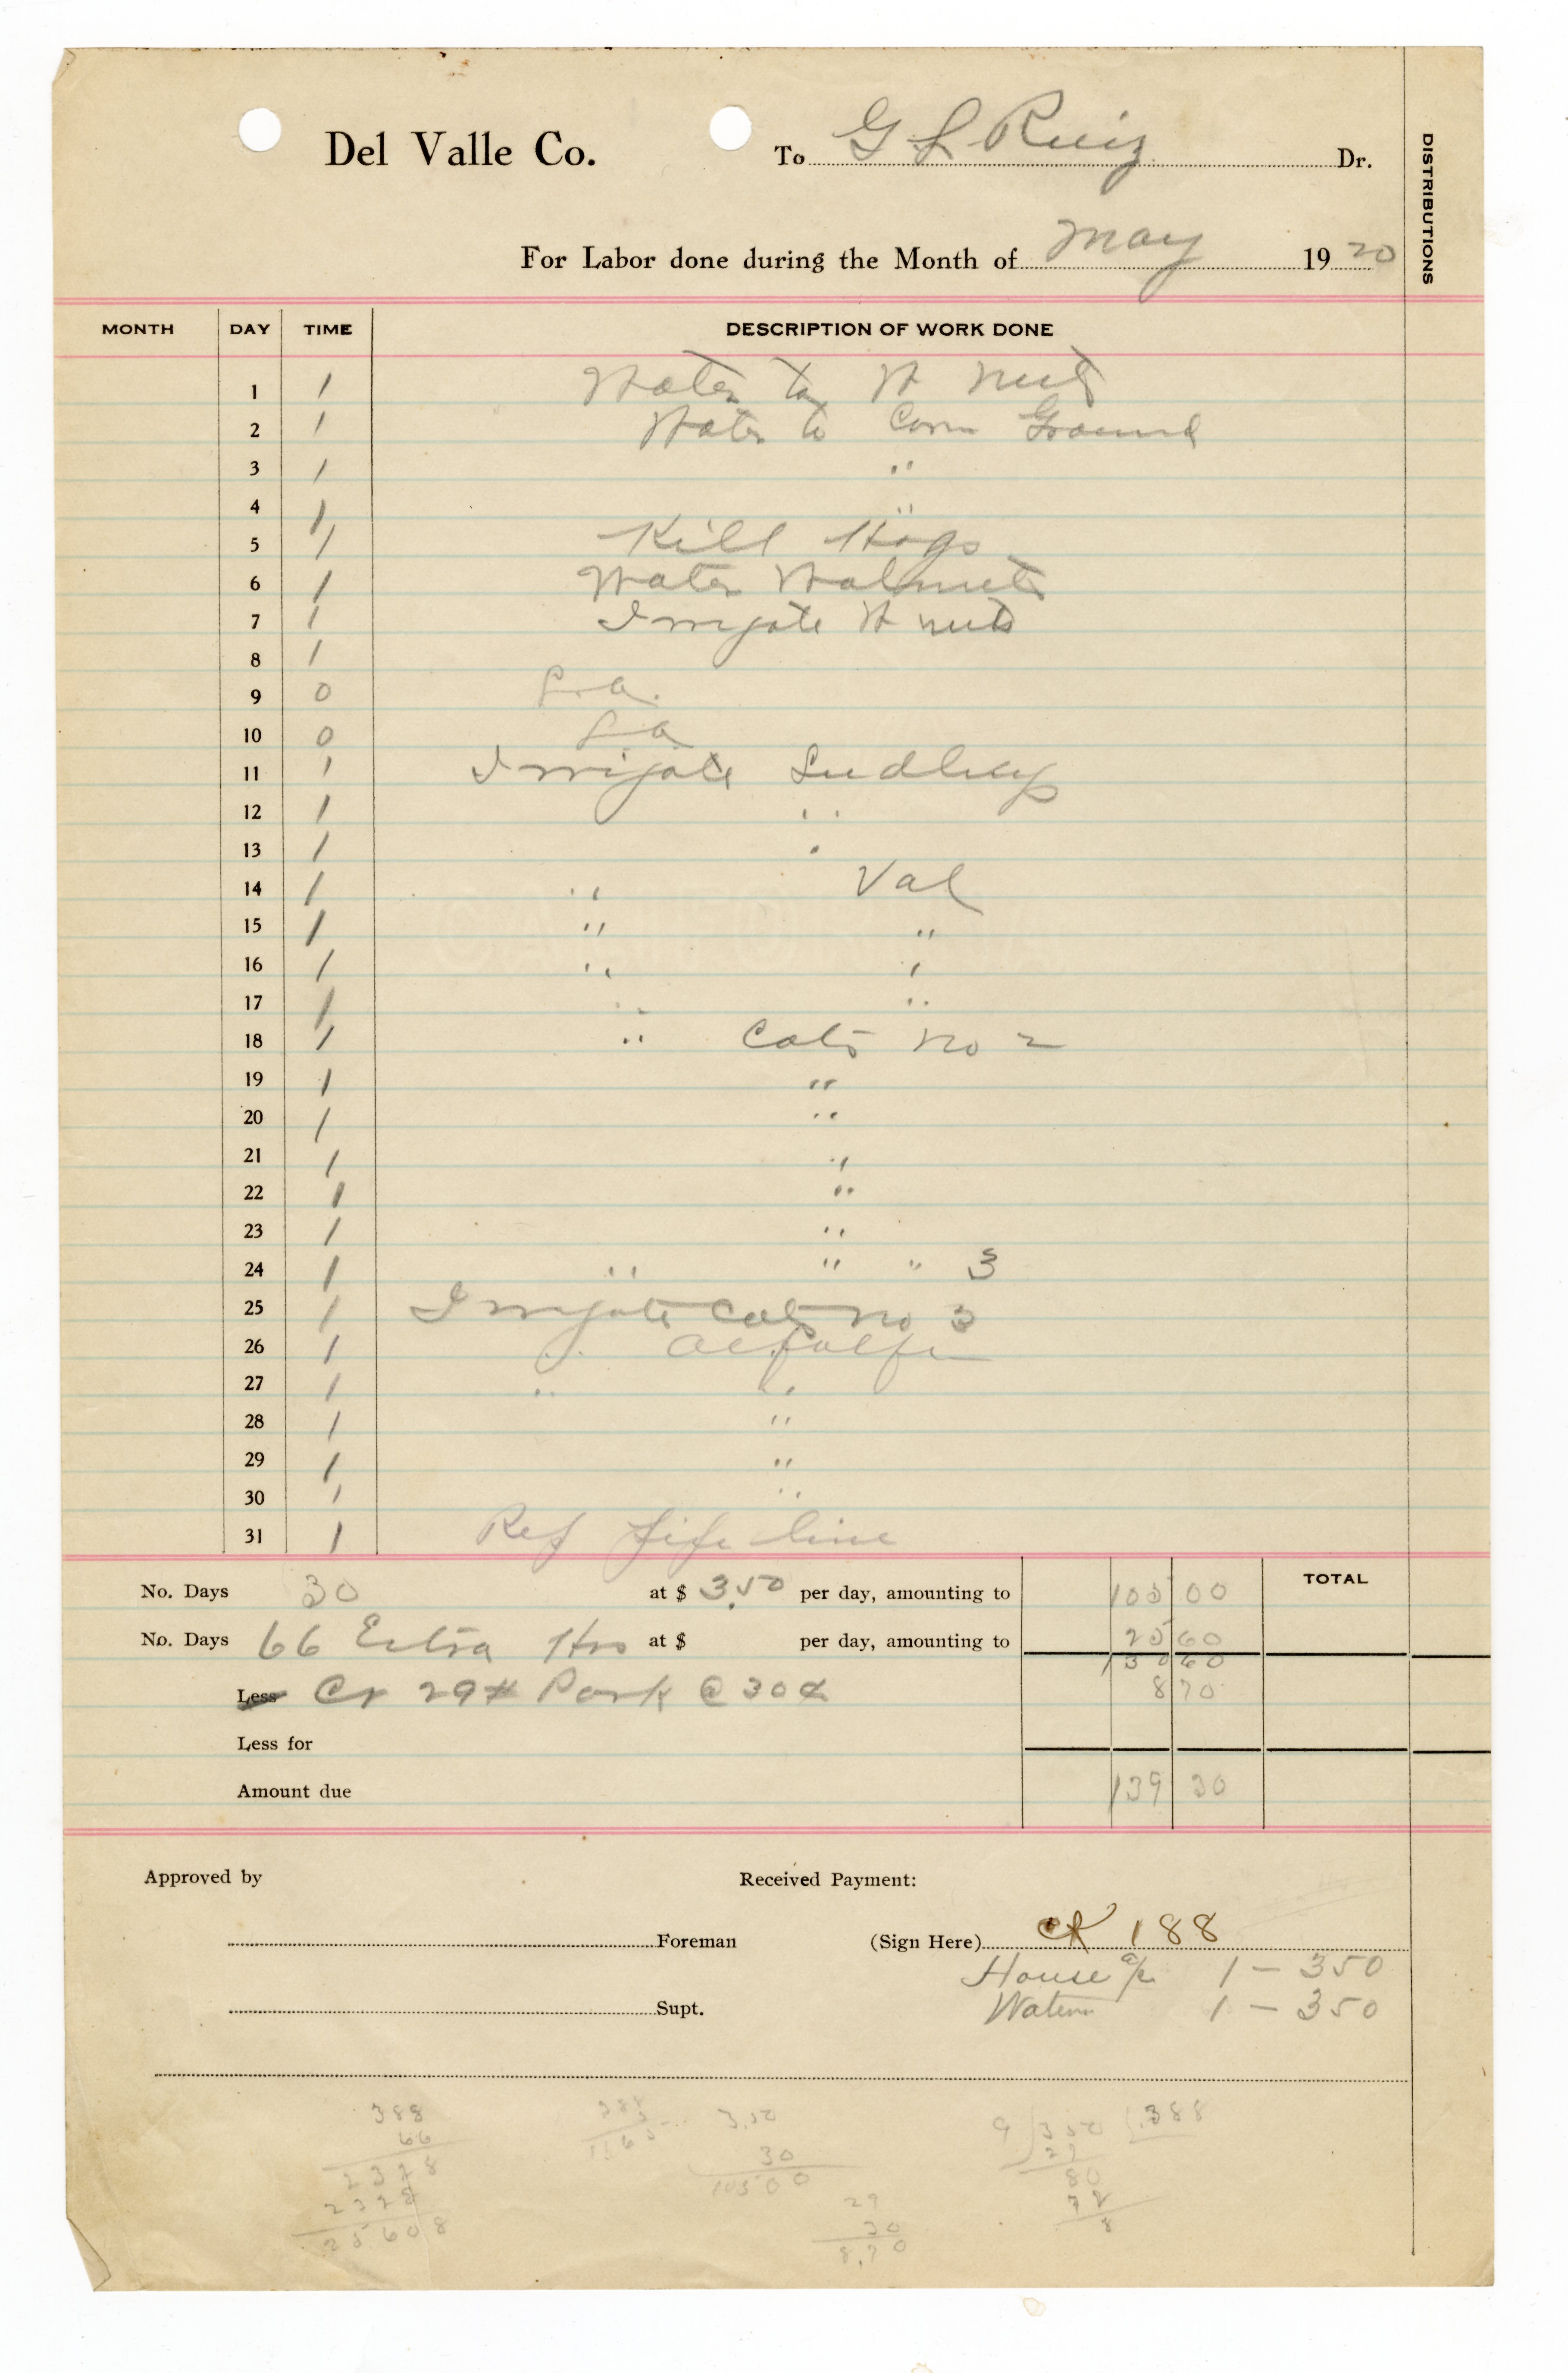 Del Valle Co. To G L Ruiz Dr.
DISTRIBUTIONS
For Labor done during the Month of May 1920
MONTH DAY TIME DESCRIPTION OF WORK DONE
1 1 Water to W nuts
2 1 Water to Corn Ground
3 1 "
4 1 "
5 1 Kill Hogs
6 1 Water Walnuts
7 1 Irrigate W nuts
8 1
9 0 L.a.
10 0 La
11 1 Irrigate
12 1 "
13 1 "
14 1 " Val
15 1 " "
16 1 " "
17 1 " "
18 1 " Cots no 2
19 1 "
20 1 "
21 1 "
22 1 "
23 1 "
24 1 " " " 3
25 1 Irrigate Cots no 3
26 1 " Alfalfa
27 1 " "
28 1 "
29 1 "
30 1 "
31 1 line
TOTAL
No. Days 30 at $ 3.50 per day, amounting to 105 00
No. Days 66 Extra Hrs at $ per day, amounting to 25 60
130 60
Less Cr 29# Pork @ 30¢ 8 70
Less for
Amount due 139 30
Approved by Received Payment:
Foreman (Sign Here) CK 188
House a/c 1 - 350
Supt. Water 1 - 350
388 3.50 9 350 .388
66 30 27
2328 10500 80
2328 29 72
25608 30 8
8.70